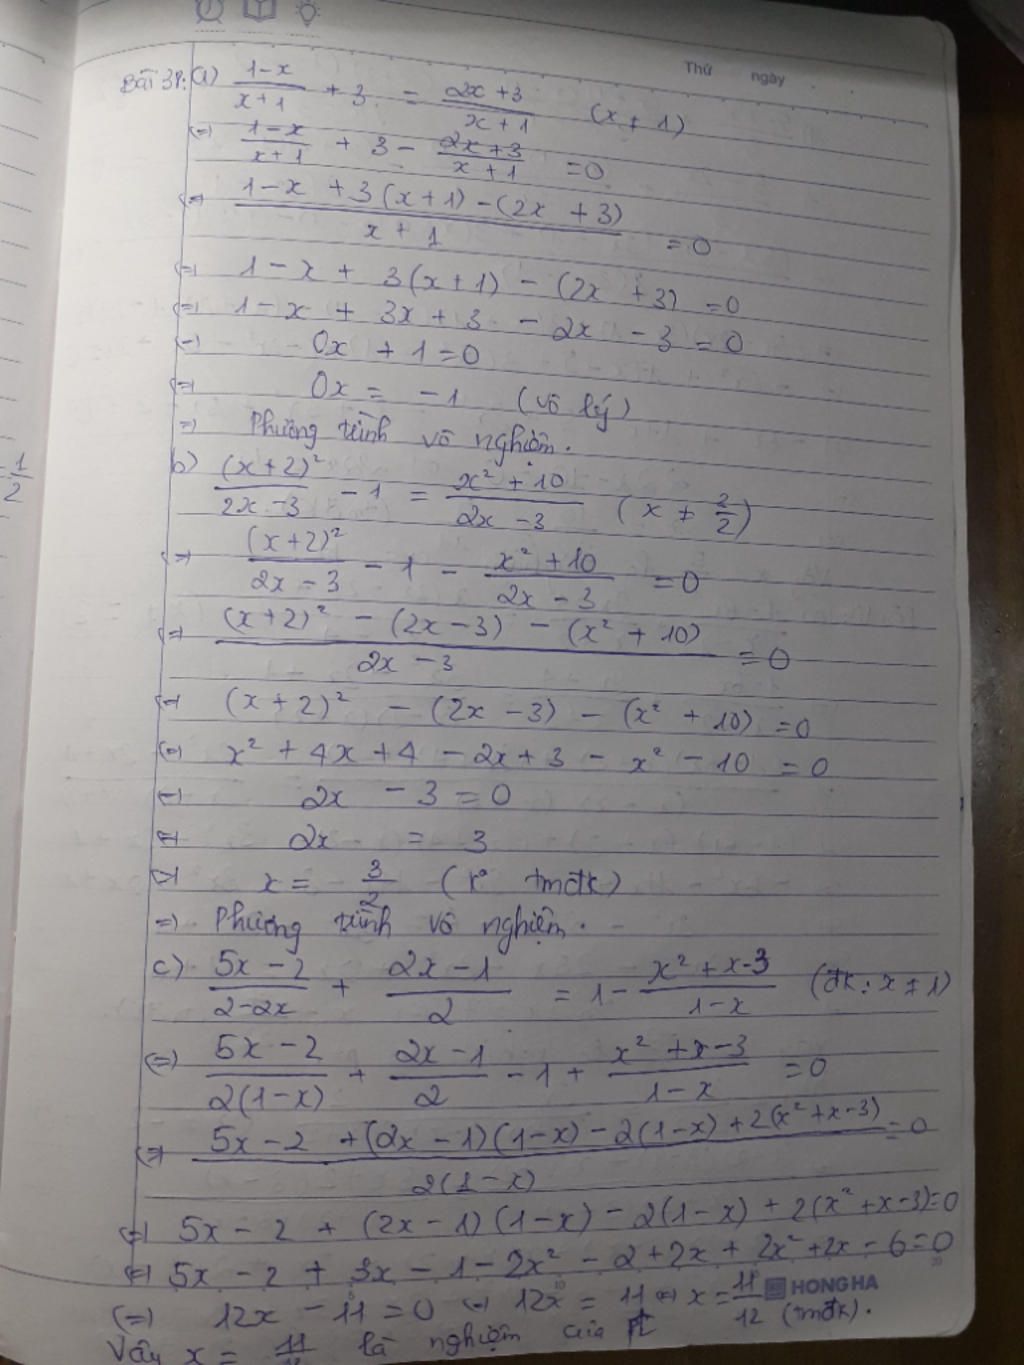 Thứ ngày
Bài 31: a) (1-x)/(x+1) + 3 = (2x+3)/(x+1) (x ≠ 1)
(=) (1-x)/(x+1) + 3 - (2x+3)/(x+1) = 0
(=) (1-x + 3(x+1) - (2x + 3))/(x+1) = 0
(=) 1 - x + 3(x+1) - (2x + 3) = 0
(=) 1 - x + 3x + 3 - 2x - 3 = 0
(=) 0x + 1 = 0
(=) 0x = -1 (vô lý)
=) Phương trình vô nghiệm.
b) (x+2)²/(2x-3) - 1 = (x² + 10)/(2x-3) (x ≠ 2/2)
(=) (x+2)²/(2x-3) - 1 - (x² + 10)/(2x-3) = 0
(=) ((x+2)² - (2x-3) - (x² + 10))/(2x-3) = 0
(=) (x+2)² - (2x-3) - (x² + 10) = 0
(=) x² + 4x + 4 - 2x + 3 - x² - 10 = 0
(=) 2x - 3 = 0
(=) 2x = 3
(=) x = 3/2 (k° tmđk)
=) Phương trình vô nghiệm.
c) (5x-2)/(2-2x) + (2x-1)/2 = 1 - (x²+x-3)/(1-x) (đk: x ≠ 1)
(=) (5x-2)/(2(1-x)) + (2x-1)/2 - 1 + (x²+x-3)/(1-x) = 0
(=) (5x-2 + (2x-1)(1-x) - 2(1-x) + 2(x²+x-3))/(2(1-x)) = 0
(=) 5x - 2 + (2x-1)(1-x) - 2(1-x) + 2(x²+x-3) = 0
(=) 5x - 2 + 3x - 1 - 2x² - 2 + 2x + 2x² + 2x - 6 = 0
(=) 12x - 11 = 0 (=) 12x = 11 (=) x = 11/12 (tmđk).
HONG HA
Vậy x = 11/12 là nghiệm của pt
1/2